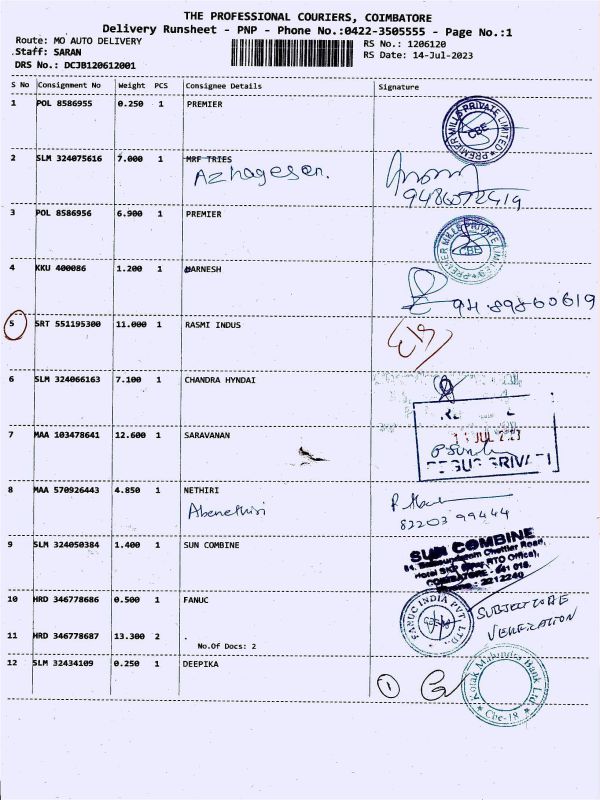 THE PROFESSIONAL COURIERS, COIMBATORE
Delivery Runsheet - PNP - Phone No.:0422-3505555 - Page No.:1
Route: MO AUTO DELIVERY
RS No.: 1206120
Staff: SARAN
RS Date: 14-Jul-2023
DRS No.: DCJB120612001
S No Consignment No Weight PCS Consignee Details Signature
1 POL 8586955 0.250 1 PREMIER
PREMIER MILLS PRIVATE LIMITED
CBE
2 SLM 324075616 7.000 1 MRF TRIES
Azhagesan.
9486072419
3 POL 8586956 6.900 1 PREMIER
PREMIER MILLS PRIVATE LIMITED
CBE
4 KKU 400086 1.200 1 HARNESH
9489860619
5 SRT 551195300 11.000 1 RASMI INDUS
6 SLM 324066163 7.100 1 CHANDRA HYNDAI
JUL
7 MAA 103478641 12.600 1 SARAVANAN
8 MAA 570926443 4.850 1 NETHIRI
Abenethiri
82203 99444
9 SLM 324050384 1.400 1 SUN COMBINE
SUN COMBINE
Chettier Road,
RTO Office),
COIMBATORE - 641 018.
Phone : 2212240
10 HRD 346778686 0.500 1 FANUC
FANUC INDIA PVT LTD.
SUBJECT TO RE
VERIFICATION
11 HRD 346778687 13.300 2 .
No.Of Docs: 2
12 SLM 32434109 0.250 1 DEEPIKA
1
Kotak Mahindra Bank Ltd.
Cbe-18